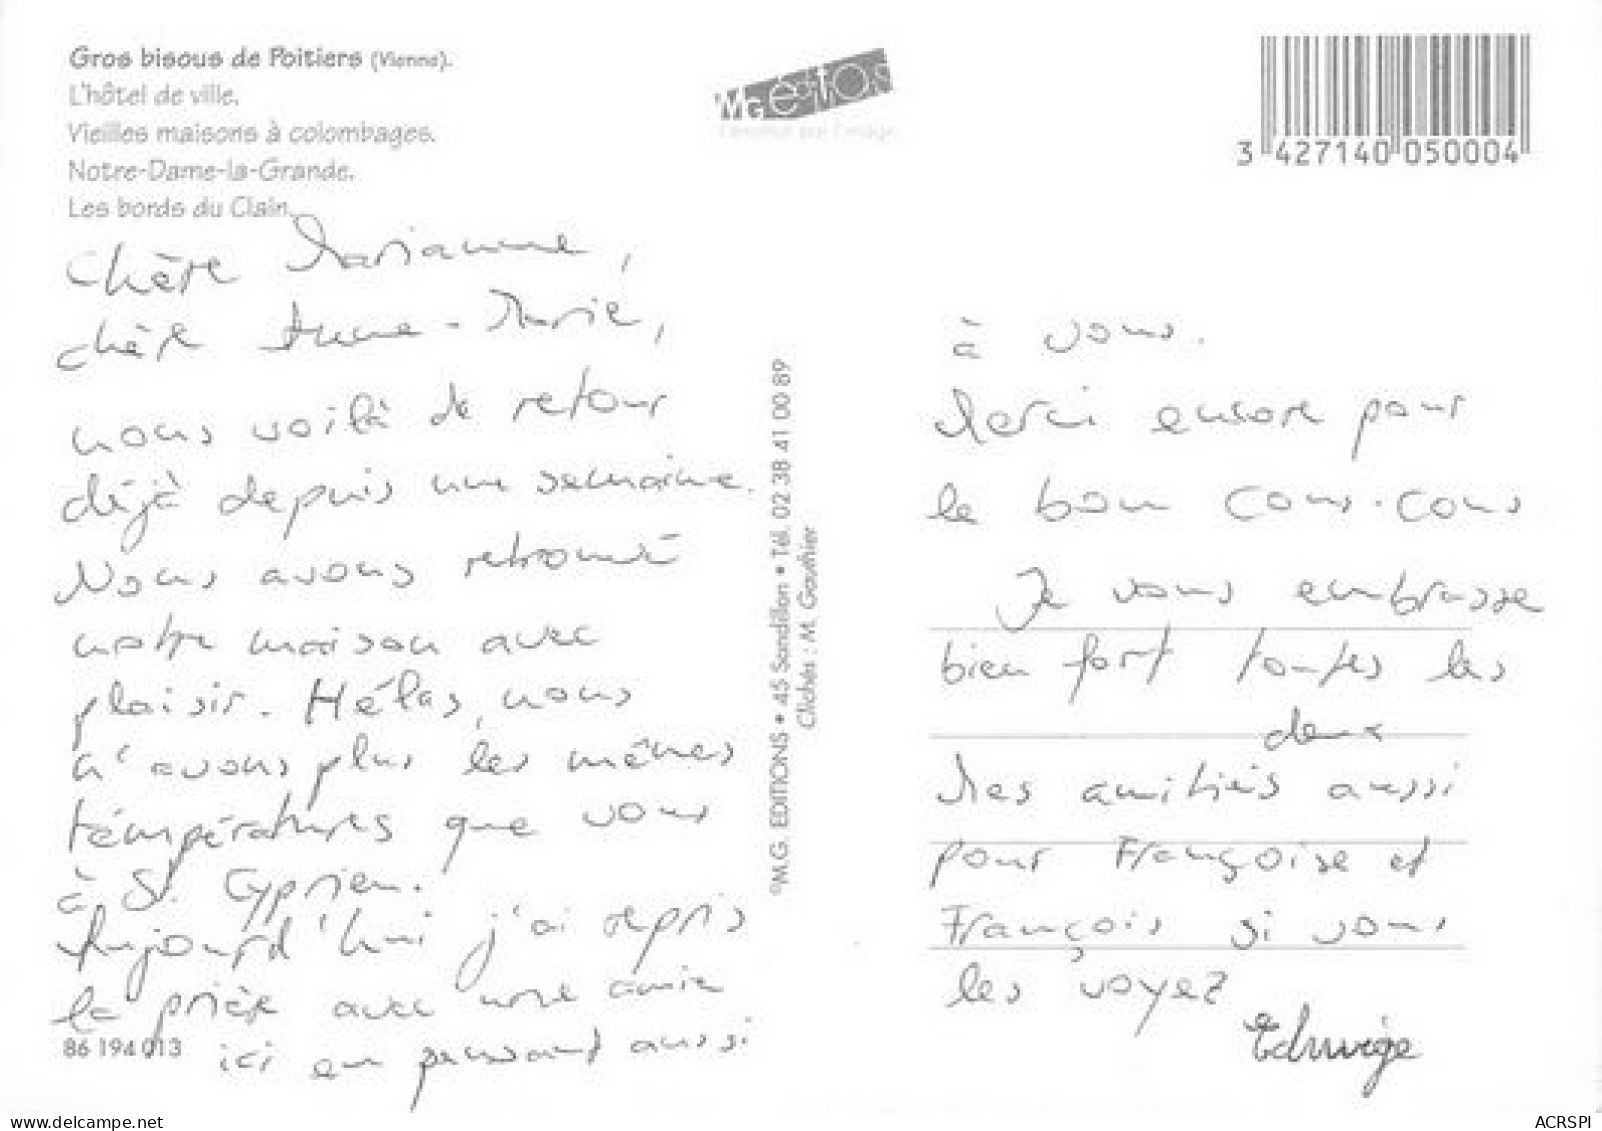 Gros bisous de Poitiers (Vienne).
L'hôtel de ville.
Vieilles maisons à colombages.
Notre-Dame-la-Grande.
Les bords du Clain.
MG éditions
3 427140 050004
Chère Marianne,
chère Anne-Marie,
nous voilà de retour
déjà depuis une semaine.
Nous avons retrouvé
notre maison avec
plaisir. Hélas, nous
n'avons plus les mêmes
températures que vous
à St. Cyprien.
Aujourd'hui j'ai repris
la prière avec une amie
ici en pensant aussi
86 194 013
©M.G. EDITIONS • 45 Sandillon • Tél. 02 38 41 00 89
Clichés : M. Gauthier
à vous.
Merci encore pour
le bon cous-cous
Je vous embrasse
bien fort toutes les
deux
Mes amitiés aussi
pour Françoise et
François si vous
les voyez
Edwige
delcampe.net
ACRSPI